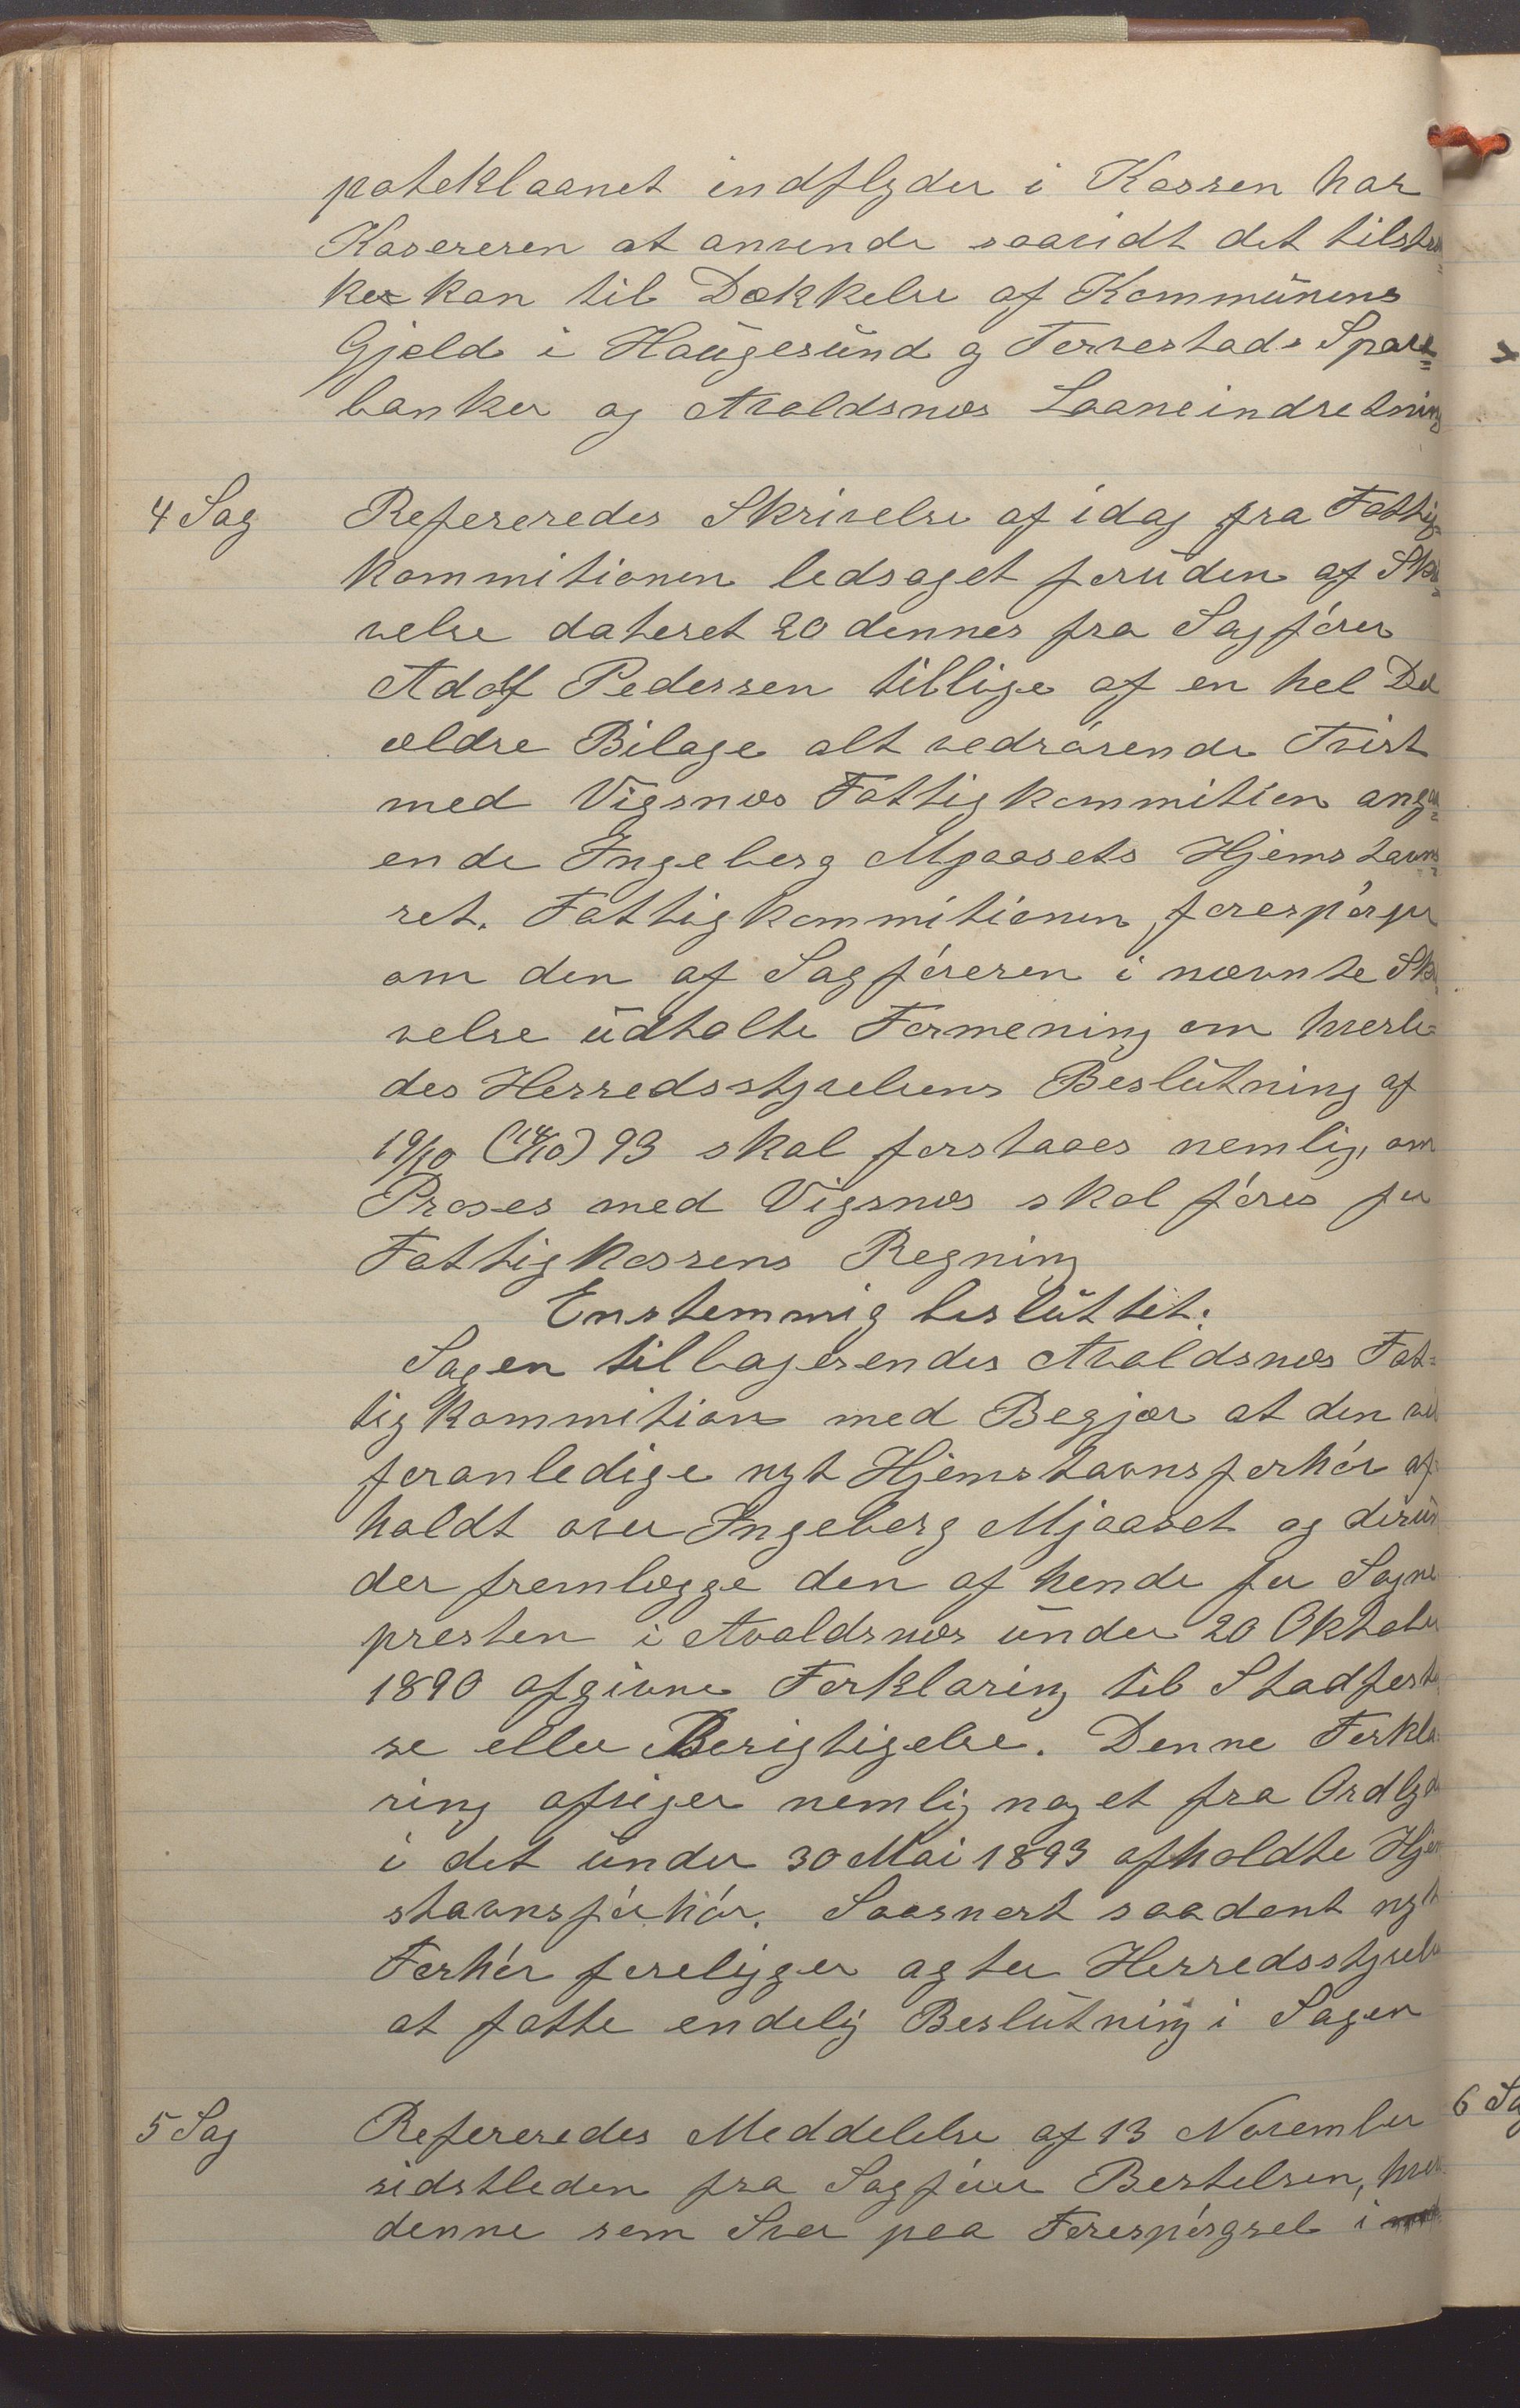 poteklaanet indflyder i Kassen har
Kasereren at anvende saavidt det tilstræ-
ke kan til Dækkelse af Kommunens
Gjæld i Haugesund og Torvestads Spare=
banker og Avaldsnæs Laaneindretning
4 Sag Refereredes Skrivelse af idag fra Fattig-
kommitionen ledsaget foruden af Skri-
velse dateret 20 dennes fra Sagfører
Adolf Pedersen tillige af en hel Del
ældre Bilage alt vedrørende Tvist
med Vigsnæs Fattigkommition angaa=
ende Ingeborg Mjaasets Hjemstavns=
ret. Fattigkommitionen forespørger
om den af Sagføreren i nævnte Skri-
velse udtalte Formening om hvorle-
des Herredsstyrelsens Beslutning af
19/10 (14/10) 93 skal forstaaes nemlig, om
Proses med Vigsnæs skal føres for
Fattigkassens Regning
Enstemmig besluttet:
Sagen tilbagesendes Avaldsnæs Fat=
tigkommition med Begjær at den vil
foranledige nyt Hjemstavnsforhør af-
holdt over Ingeborg Mjaaset og derun
der fremlægge den af hende for Sogne
presten i Avaldsnæs under 20 Oktober
1890 afgivne Forklaring til Stadfestel
se eller Berigtigelse. Denne Forkla
ring afviger nemlig noget fra Ordlyden
i det under 30 Mai 1893 afholdte Hjem
stavnsforhør. Saasnert saadent nyt
Forhør foreligger agter Herredsstyrelsen
at fatte endelig Beslutning i Sagen
5 Sag Refereredes Meddelelse af 13 November
sidstleden fra Sagfører Bertelsen, hvor
denne som Svar paa Forespørgsel i
6 Sa